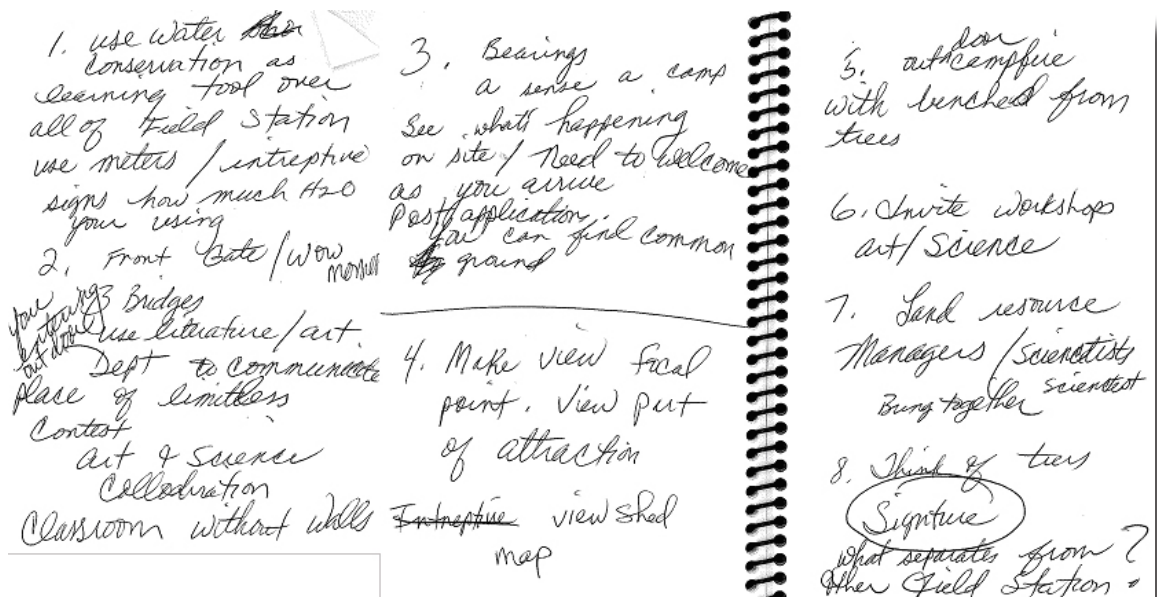 1. use water
conservation as
learning tool over
all of Field Station
use meters / intreptive
signs how much H2O
your using
2. Front Gate / Wow
moment
you
entering
out door
3 Bridges
use literature / art.
Dept to communicate
place of limitless
Contest
art & Science
Collobration
Classroom without Walls
3. Bearings
a sense a camp
See what's happening
on site / Need to welcome
as you arrive
Post/application.
You can find common
ground
4. Make view focal
point. View Part
of attraction
Intreptive view shed
map
5. out door campfire
with benched from
trees
6. Invite workshops
art / Science
7. Land resource
Managers / Scientists
scientest
Bring together
8. Think of tiers
Signture
what separates from
Other Field Station ?